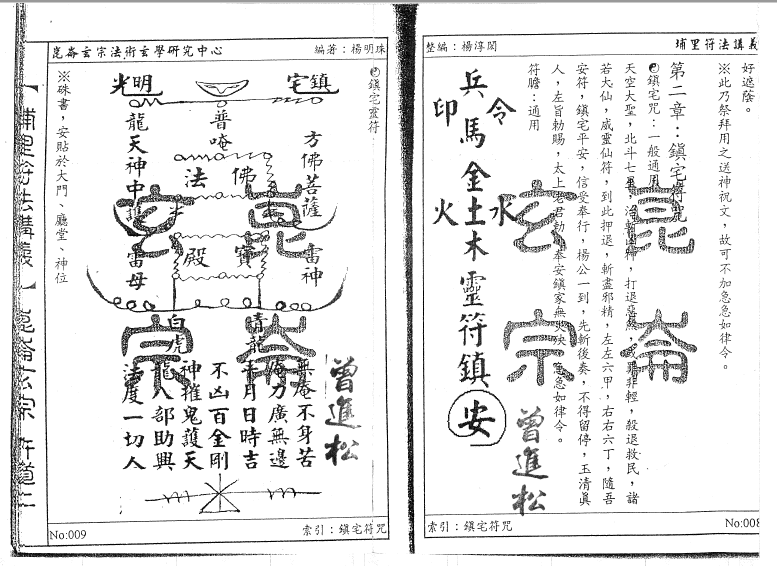 整編：楊淳閎
埔里符法講義
好遮蔭。
※此乃祭拜用之送神祝文，故可不加急急如律令。
第二章：鎮宅符咒
鎮宅咒：一般通用
天空大聖，北斗七星，神，打退惡煞，非輕，殺退救民，諸
若大仙，威靈仙符，到此押退，斬盡邪精，左左六甲，右右六丁，隨吾
安符，鎮宅平安，信受奉行，楊公一到，先斬後奏，不得留停，玉清眞
人，左旨勅賜，太上老君勅，奉安鎮家無火殃，急急如律令。
符膽：通用
令
水
兵馬金土木靈符鎮安
印
火
昆崙
玄宗
曾進松
索引：鎮宅符咒
No:008
崑崙玄宗法術玄學研究中心
編著：楊明珠
鎮宅靈符
鎮宅
光明
方佛菩薩
雷神
普唵
佛法
寶殿
龍天神中
雷母
青龍
白虎
昆崙
玄宗
無庵不身苦
力廣無邊
年月日時吉
不凶百金剛
神摧鬼護天
龍八部助興
法度一切人
曾進松
※硃書，安貼於大門、廳堂、神位
索引：鎮宅符咒
No:009